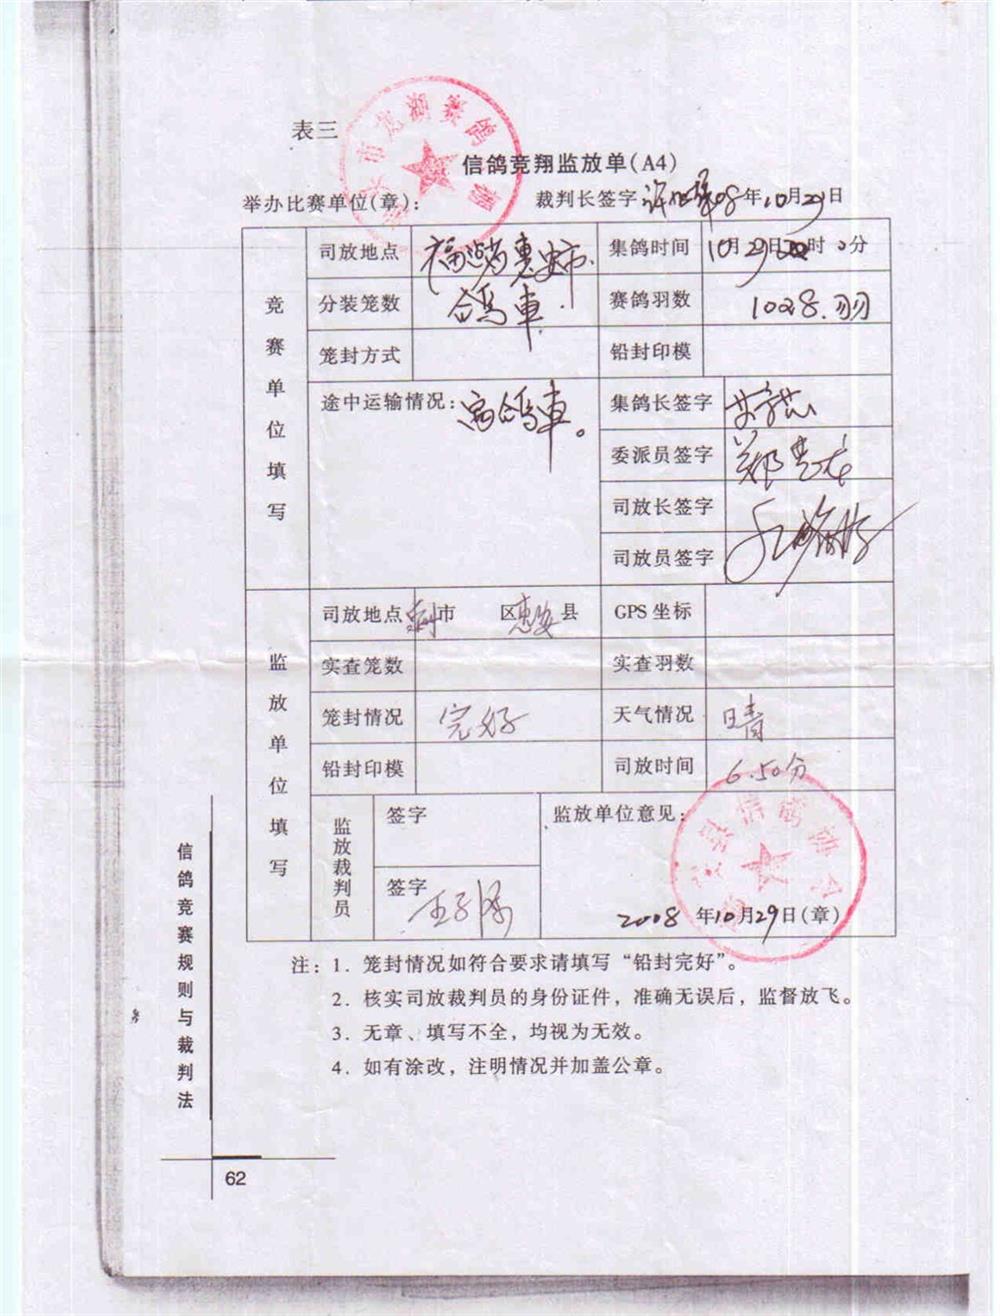 表三
信鸽竞翔监放单(A4)
举办比赛单位(章): 裁判长签字 08年10月29日
竞赛单位填写
司放地点 福建省惠安市 集鸽时间 10月29日 时0分
分装笼数 鸽車 赛鸽羽数 1028.羽
笼封方式 铅封印模
途中运输情况: 鸽車。 集鸽长签字
委派员签字
司放长签字
司放员签字
监放单位填写
司放地点 市 区惠安县 GPS坐标
实查笼数 实查羽数
笼封情况 完好 天气情况 晴
铅封印模 司放时间 6.50分
监放裁判员 签字 监放单位意见:
签字
2008年10月29日(章)
注:1. 笼封情况如符合要求请填写“铅封完好”。
2. 核实司放裁判员的身份证件,准确无误后,监督放飞。
3. 无章、填写不全,均视为无效。
4. 如有涂改,注明情况并加盖公章。
信鸽竞赛规则与裁判法
62